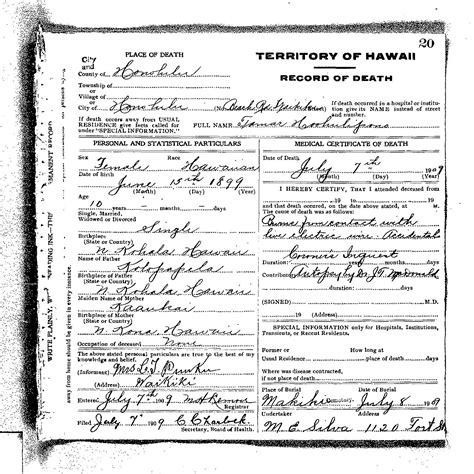 20
PLACE OF DEATH
City and County of Honolulu
Township or
Village of
City of Honolulu
If death occurs away from USUAL RESIDENCE give facts called for under "SPECIAL INFORMATION."
TERRITORY OF HAWAII
RECORD OF DEATH
If death occurred in a hospital or institution give its NAME instead of street and number.
FULL NAME
PERSONAL AND STATISTICAL PARTICULARS
Sex Female Race Hawaiian
Date of Birth
June 15th 1899
(Month) (Day) (Year)
Age
10 years months days
Single, Married, Widowed or Divorced
Single
Birthplace (State or Country)
N. Kohala Hawaii
Name of Father
Birthplace of Father (State or Country)
N. Kohala Hawaii
Maiden Name of Mother
Birthplace of Mother (State or Country)
N. Kona Hawaii
Occupation of deceased None
The above stated personal particulars are true to the best of my knowledge and belief.
(Informant) Mrs
(Address) Waikiki
Entered July 7th 1909
Registrar
Filed July 7 1909
Secretary, Board of Health.
MEDICAL CERTIFICATE OF DEATH
Date of Death
July 7th 1909
(Month) (Day) (Year)
I HEREBY CERTIFY, That I attended deceased from
19 to 19
and that death occurred, on the date above stated, at M.
The cause of death was as follows:
Burns from contact with
live electric wire Accidental
Coroners Inquest
Duration years months days
Contributory Autopsy by Dr. J.T. McDonald
Duration years months days
(SIGNED) M.D.
19 (Address)
SPECIAL INFORMATION only for Hospitals, Institutions, Transients, or Recent Residents.
Former or Usual Residence
How long at place of death days
Where was disease contracted, if not at place of death?
Place of Burial Date of Burial
Makiki July 8 1909
Undertaker Address
M. E. Silva 1120 Fort St